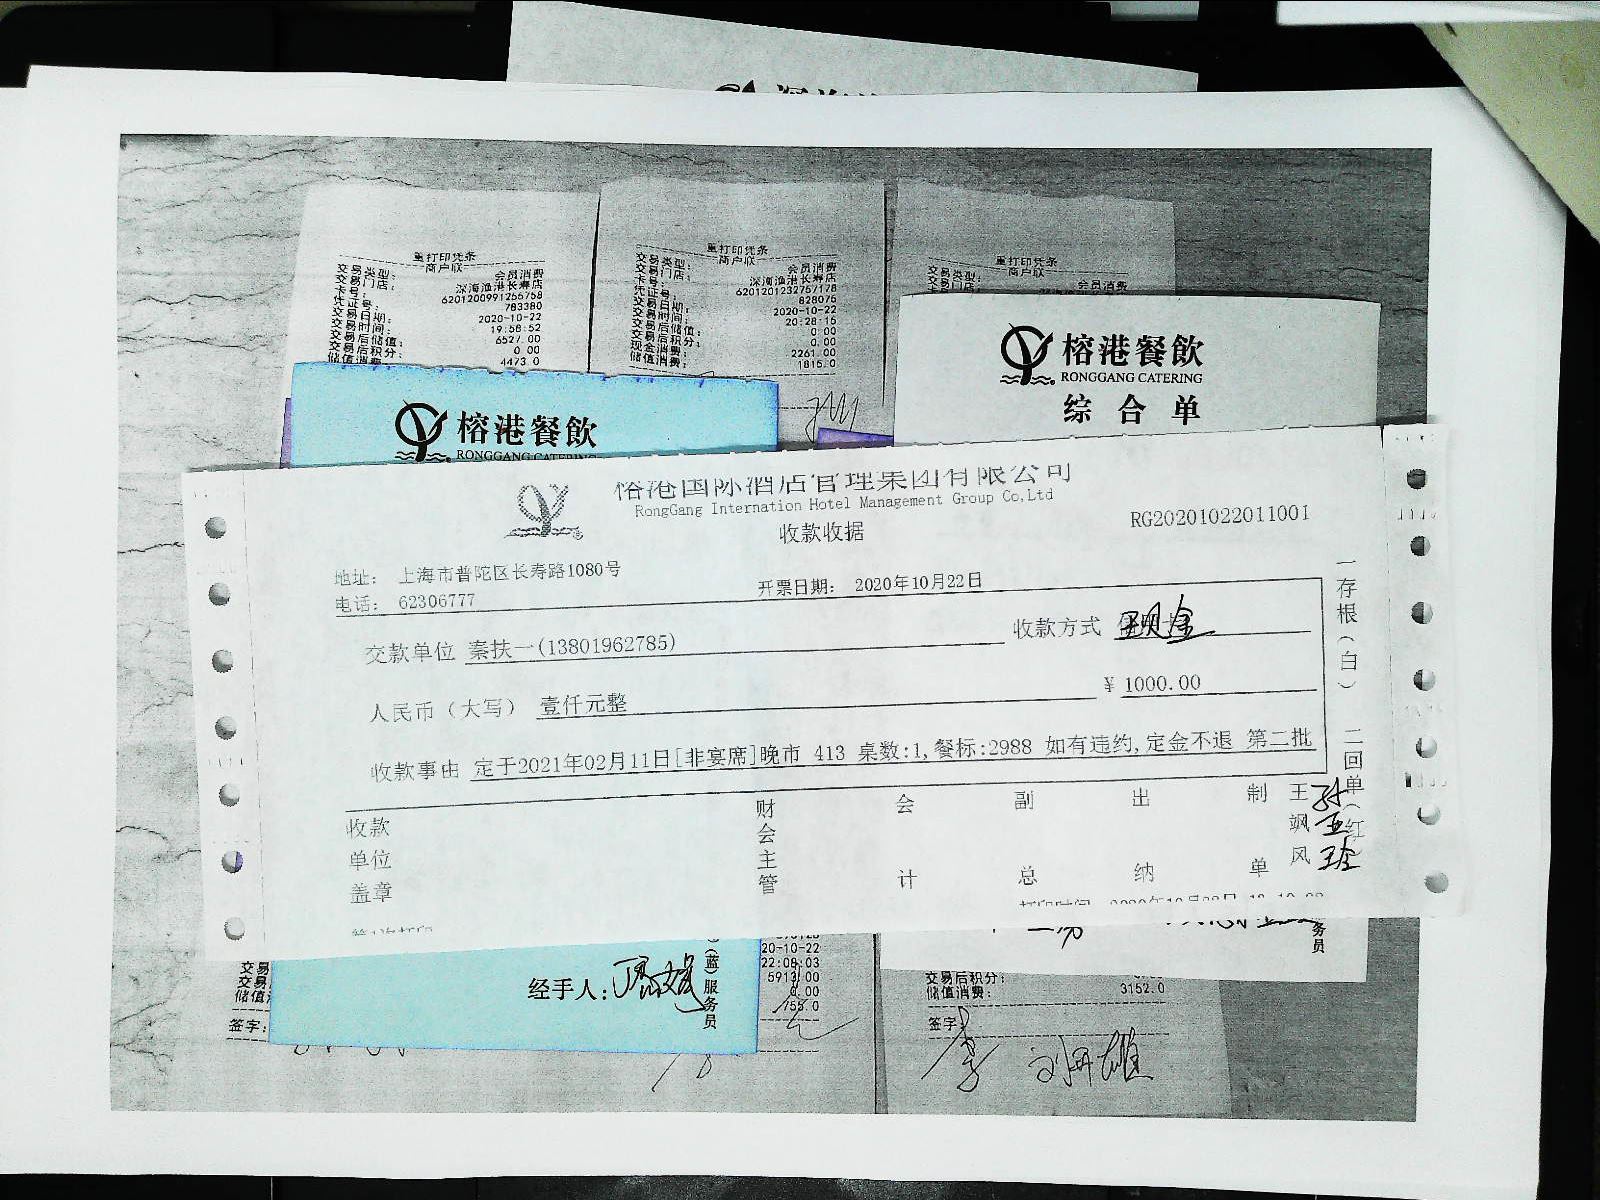 重打印凭条
商户联
交易类型： 会员消费
交易门店： 深海渔港长寿店
卡号： 6201200991255758
凭证号： 783380
交易日期： 2020-10-22
交易时间： 19:58:52
交易后储值： 6527.00
交易后积分： 0.00
储值消费： 4473.0
重打印凭条
商户联
交易类型： 会员消费
交易门店： 深海渔港长寿店
卡号： 6201201232757178
凭证号： 828076
交易日期： 2020-10-22
交易时间： 20:28:16
交易后储值： 0.00
交易后积分： 0.00
现金消费： 2261.00
储值消费： 1815.0
重打印凭条
商户联
交易类型： 会员消费
榕港餐飲
RONGGANG CATERING
综合单
榕港餐飲
RONGGANG CATERING
榕港国际酒店管理集团有限公司
RongGang Internation Hotel Management Group Co,Ltd
收款收据
RG20201022011001
地址： 上海市普陀区长寿路1080号
电话： 62306777
开票日期： 2020年10月22日
交款单位 秦扶一(13801962785)
收款方式 现金
人民币（大写） 壹仟元整
¥ 1000.00
收款事由 定于2021年02月11日[非宴席]晚市 413 桌数:1,餐标:2988 如有违约,定金不退 第二批
收款单位盖章
财会主管
会计
副总
出纳
制单
王飒风
一存根（白） 二回单（红）
20-10-22
22:08:03
5913.00
0.00
755.0
签字：
经手人：
（蓝）服务员
务员
交易后积分：
储值消费： 3152.0
签字